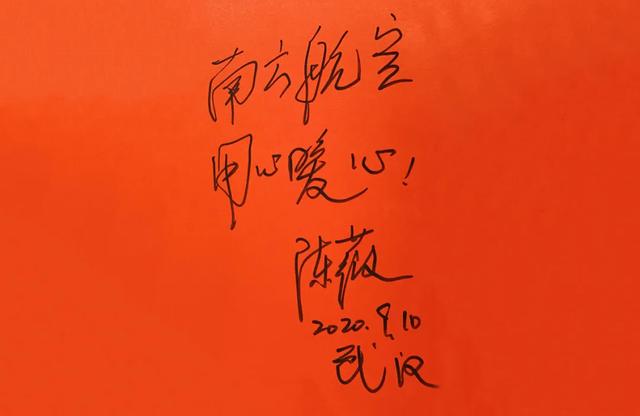 南方航空
用心暖心!
陈薇
2020.9.10
武汉